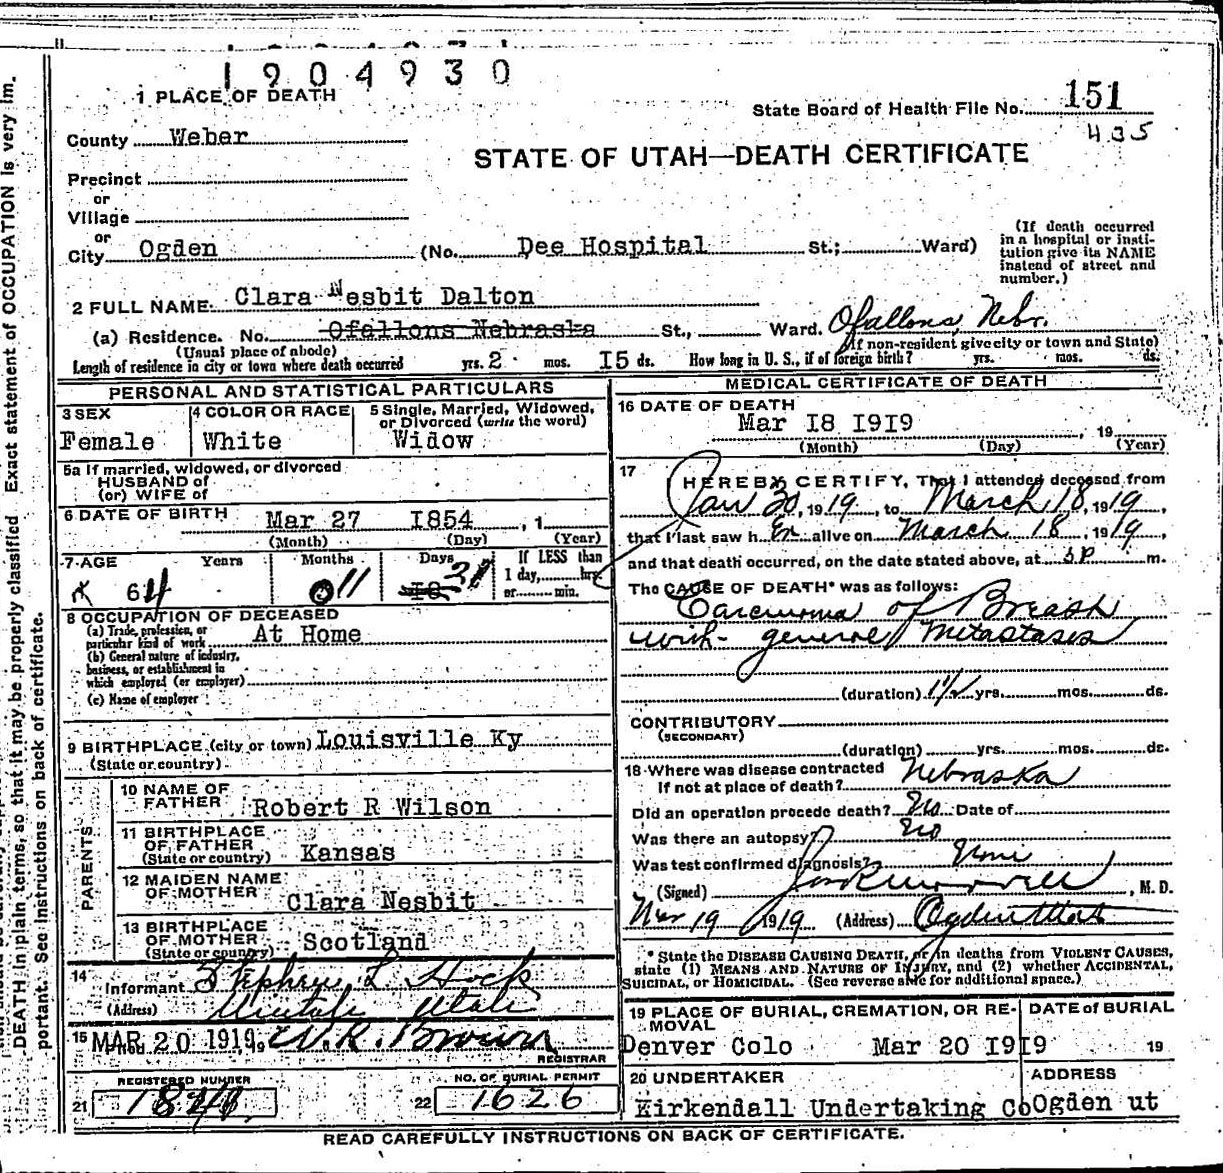 1904930
1 PLACE OF DEATH
State Board of Health File No. 151
435
County Weber
STATE OF UTAH—DEATH CERTIFICATE
Precinct
or
Village
or
City Ogden (No. Dee Hospital St.; Ward)
(If death occurred in a hospital or insti-
tution give its NAME
instead of street and
number.)
2 FULL NAME Clara Nesbit Dalton
(a) Residence. No. Ofallons Nebraska St., Ward. Ofallons, Nebr.
(Usual place of abode) (If non-resident give city or town and State)
Length of residence in city or town where death occurred yrs. 2 mos. I5 ds. How long in U. S., if of foreign birth? yrs. mos. ds.
PERSONAL AND STATISTICAL PARTICULARS
3 SEX
Female
4 COLOR OR RACE
White
5 Single, Married, Widowed,
or Divorced (write the word)
Widow
5a If married, widowed, or divorced
HUSBAND of
(or) WIFE of
6 DATE OF BIRTH Mar 27 I854 , 1
(Month) (Day) (Year)
7 AGE Years Months Days If LESS than
1 day, hrs.
or min.
64 11 21
8 OCCUPATION OF DECEASED
(a) Trade, profession, or
particular kind of work At Home
(b) General nature of industry,
business, or establishment in
which employed (or employer)
(c) Name of employer
9 BIRTHPLACE (city or town) Louisville Ky
(State or country)
PARENTS
10 NAME OF
FATHER Robert R Wilson
11 BIRTHPLACE
OF FATHER
(State or country) Kansas
12 MAIDEN NAME
OF MOTHER Clara Nesbit
13 BIRTHPLACE
OF MOTHER
(State or country) Scotland
14
Informant Stephen L.
(Address) Utah
15 Filed MAR 20 1919, 19 W. R. Brown
REGISTRAR
REGISTERED NUMBER
21
NO. OF BURIAL PERMIT
22 1626
MEDICAL CERTIFICATE OF DEATH
16 DATE OF DEATH
Mar I8 I9I9 , 19
(Month) (Day) (Year)
17 I HEREBY CERTIFY, That I attended deceased from
Jan 20, 1919, to March 18, 1919,
that I last saw h er alive on March 18, 1919
and that death occurred, on the date stated above, at 5P m.
The CAUSE OF DEATH* was as follows:
Carcinoma of Breast
with general Metastasis
(duration) 1 1/2 yrs. mos. ds.
CONTRIBUTORY
(SECONDARY)
(duration) yrs. mos. ds.
18 Where was disease contracted
If not at place of death? Nebraska
Did an operation precede death? No Date of
Was there an autopsy? No
Was test confirmed diagnosis? None
(Signed) , M. D.
Mar 19 1919 (Address) Ogden Utah
* State the DISEASE CAUSING DEATH, or in deaths from VIOLENT CAUSES,
state (1) MEANS AND NATURE OF INJURY, and (2) whether ACCIDENTAL,
SUICIDAL, or HOMICIDAL. (See reverse side for additional space.)
19 PLACE OF BURIAL, CREMATION, OR RE-
MOVAL
DATE OF BURIAL
Denver Colo Mar 20 I9I9 19
20 UNDERTAKER
ADDRESS
Kirkendall Undertaking Co Ogden ut
READ CAREFULLY INSTRUCTIONS ON BACK OF CERTIFICATE.
DEATH in plain terms, so that it may be properly classified Exact statement of OCCUPATION is very im.
portant. See Instructions on back of certificate.